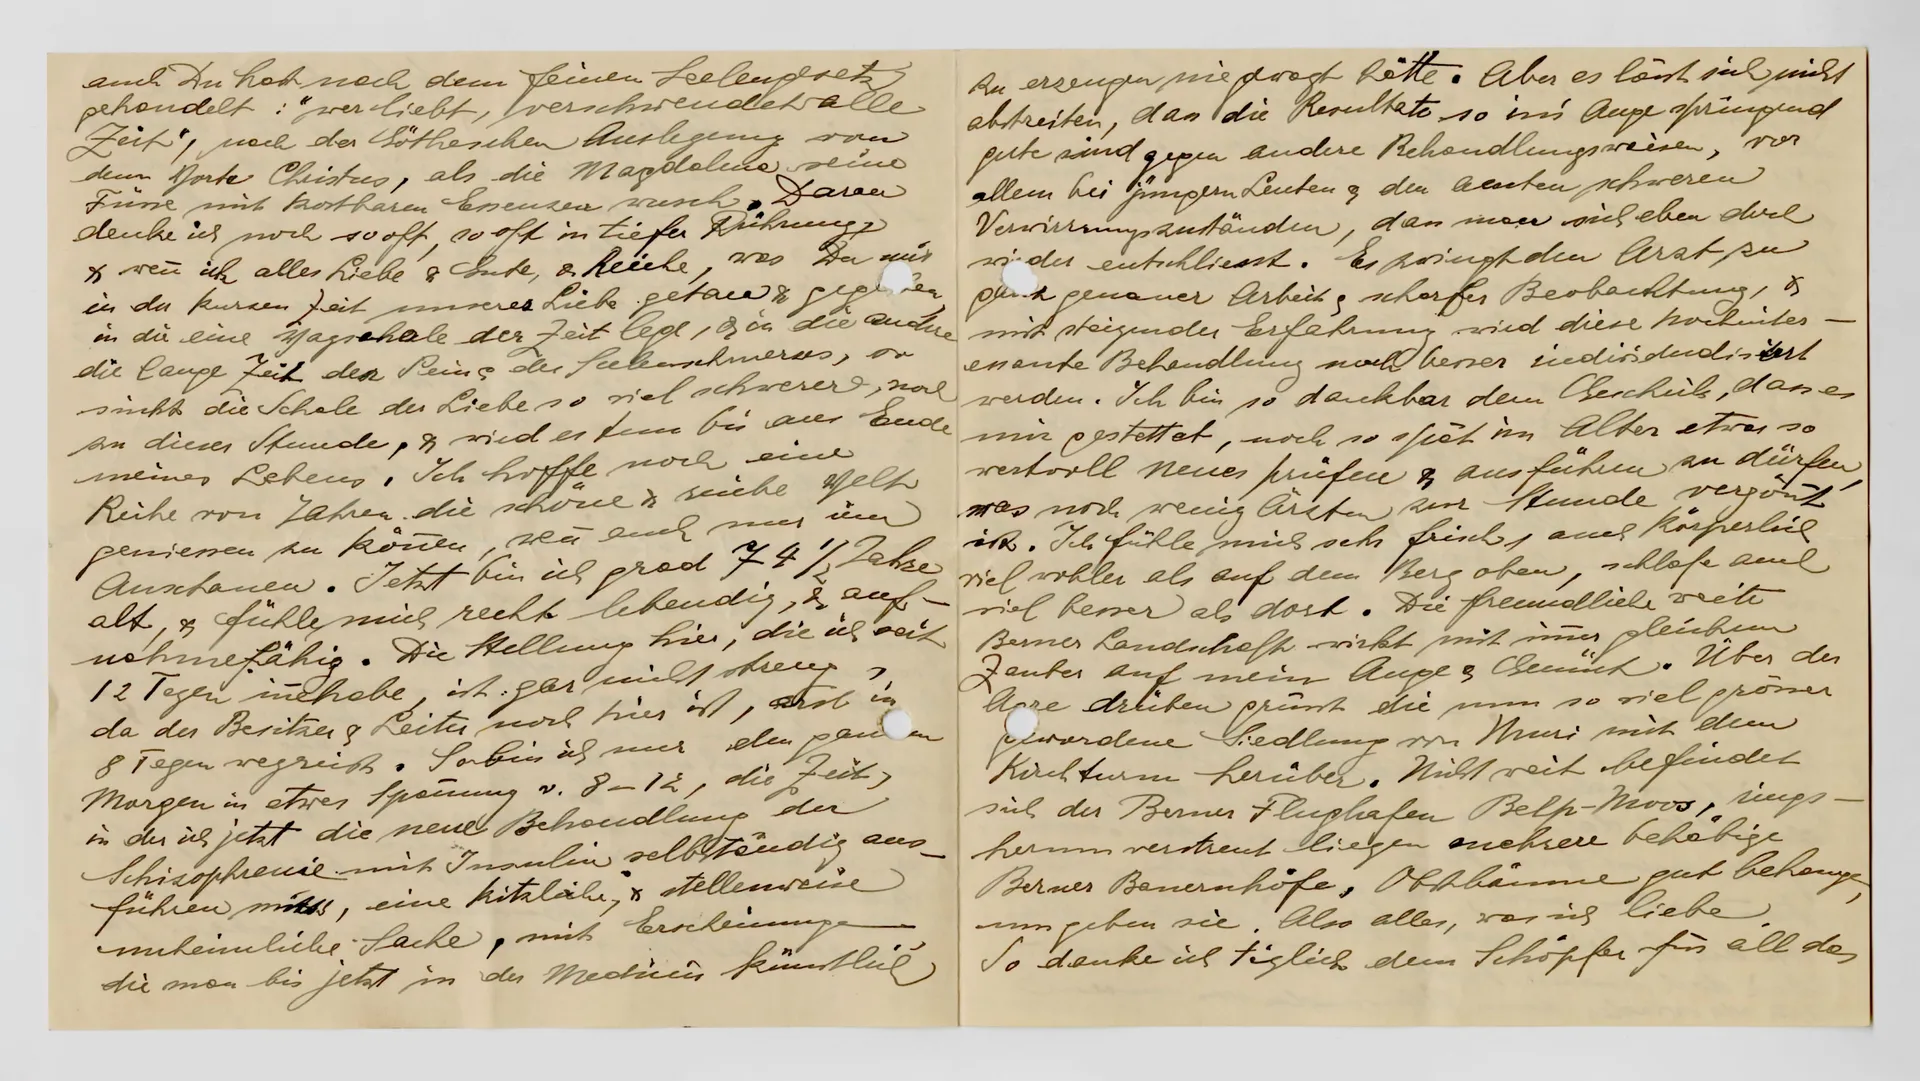 auch Du hast nach dem feinen Seelengesetz
gehandelt: "wer liebt, verschwendet alle
Zeit", nach der Götheschen Auslegung von
dem Worte Christus, als die Magdalena seine
Füsse mit kostbaren Essenzen wusch. Daran
denke ich noch so oft, so oft in tiefer Rührung,
& weñ ich alles Liebe & Gute, & Reiche, was Du mir
in der kurzen Zeit unserer Liebe getan & gegeben,
in die eine Wagschale der Zeit lege, & in die andere
die lange Zeit der Pein & des Seelenschmerzes, so
sinkt die Schale der Liebe so viel schwerer, noch
zu dieser Stunde, & wird es tun bis ans Ende
meines Lebens. Ich hoffe noch eine
Reihe von Jahren die schöne & reiche Welt
geniessen zu köñen, weñ auch nur im
Anschauen. Jetzt bin ich grad 74 1/2 Jahre
alt, & fühle mich recht lebendig, & auf-
nahmefähig. Die Stellung hier, die ich seit
12 Tagen iñehabe, ist gar nicht streng,
da der Besitzer & Leiter noch hier ist, erst in
8 Tagen wegreist. So bin ich nur den ganzen
Morgen in etwas Spañung v. 8-12, die Zeit,
in der ich jetzt die neue Behandlung der
Schizophrenie mit Insulin selbständig aus-
führen muss, eine kitzliche, & stellenweise
unheimliche Sache, mit Erscheinungen
die man bis jetzt in der Medizin künstlich
zu erzeugen nie gewagt hätte. Aber es lässt sich nicht
abstreiten, dass die Resultate so ins Auge springend
gute sind gegen andere Behandlungsweisen, vor
allem bei jüngern Leuten & den acuten schweren
Verwirrungszuständen, dass man sich eben doch
wieder entschliesst. Es zwingt den Arzt zu
ganz genauer Arbeit & scharfer Beobachtung, &
mit steigender Erfahrung wird diese hochinter-
essante Behandlung noch besser individualisiert
werden. Ich bin so dankbar dem Geschick, dass es
mir gestattet, noch so spät im Alter etwas so
wertvoll neues prüfen & ausführen zu dürfen,
was noch wenig Ärzten zur Stunde vergöñt
ist. Ich fühle mich sehr frisch, auch körperlich
viel wohler als auf dem Berg oben, schlafe auch
viel besser als dort. Die freundliche weite
Berner Landschaft wirkt mit im̄er gleichem
Zauber auf mein Auge & Gemüt. Über der
Aare drüben grüsst die nun so viel grösser
gewordene Siedlung von Muri mit dem
Kirchturm herüber. Nicht weit befindet
sich der Berner Flughafen Belp-Moos, rings-
herum verstreut liegen mehrere behäbige
Berner Bauernhöfe, Obstbäume gut behangen,
umgeben sie. Also alles, was ich liebe
So danke ich täglich dem Schöpfer für all das